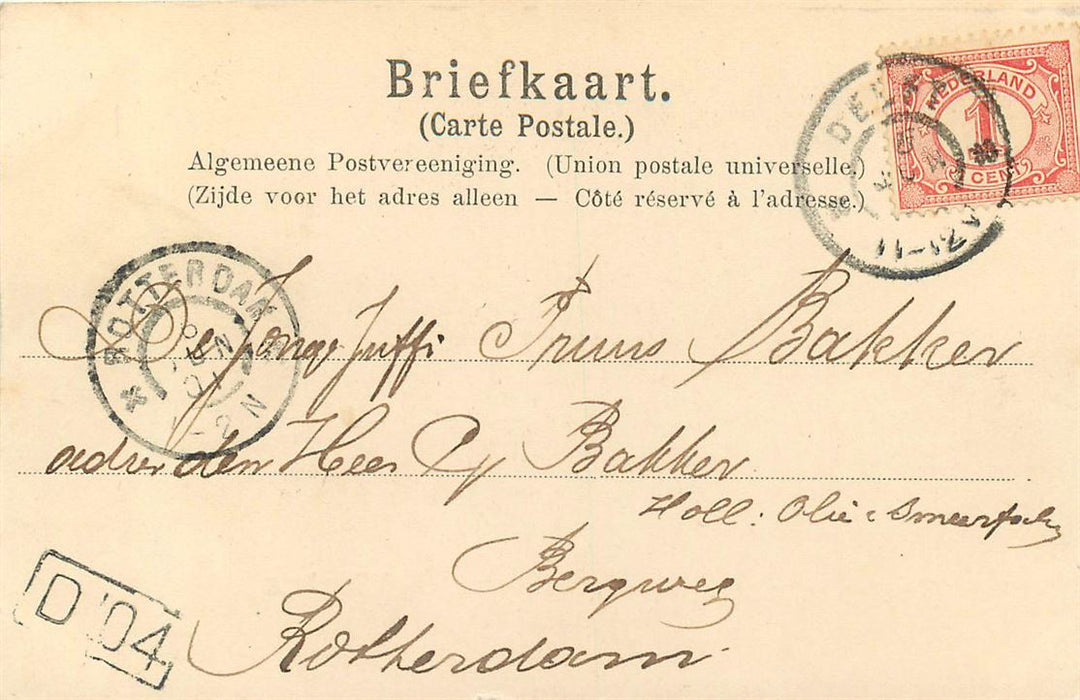 Briefkaart.
(Carte Postale.)
Algemeene Postvereeniging. (Union postale universelle.)
(Zijde voor het adres alleen — Côté réservé à l'adresse.)
NEDERLAND
1
CENT
DELFT
11-12
ROTTERDAM
1-2 N
De Jonge Juffr Truus Bakker
adres den Heer Bakker
Holl: Olie
Bergweg
Rotterdam
D '04